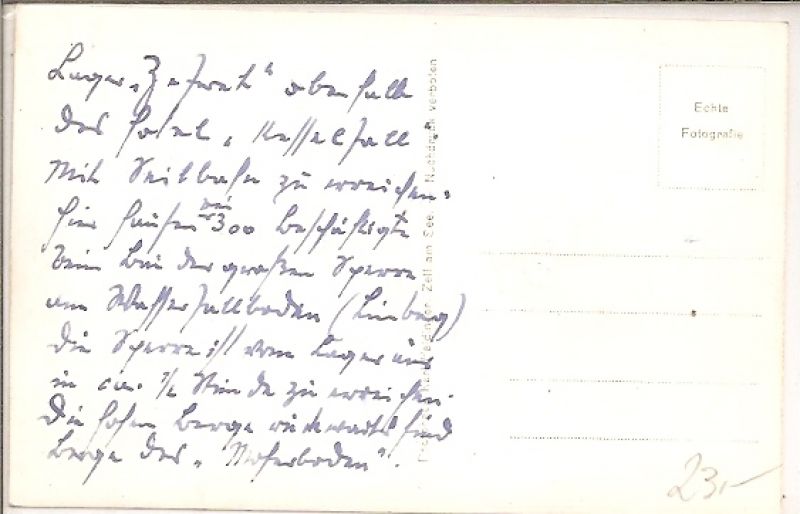 Lager „Zefret" oberhalb
des Hotel „Kesselfall"
Mit Seilbahn zu erreichen.
Hier hausen wir 300 Beschäftigte
beim Bau der großen Sperre
am Wasserfallboden (Limberg)
Die Sperre ist vom Lager aus
in ca. ½ Stunde zu erreichen.
Die hohen Berge rückwärts sind
Berge des „Moserboden".
Zell am See. Nachdruck verboten
Echte
Fotografie
23,-